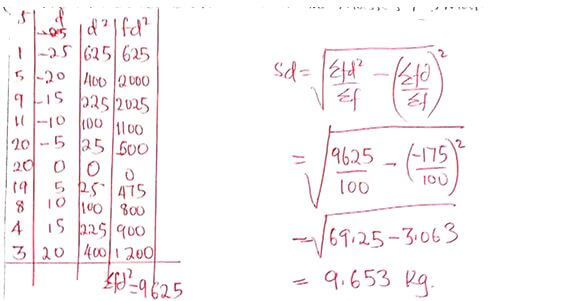 f d d² fd²
-25
1 -25 625 625
5 -20 400 2000
9 -15 225 2025
11 -10 100 1100
20 -5 25 500
20 0 0 0
19 5 25 475
8 10 100 800
4 15 225 900
3 20 400 1200
Σfd²=9625
Sd = √(Σfd²/Σf - (Σfd/Σf)²)
= √(9625/100 - (-175/100)²)
= √69.25-3.063
= 9.653 Kg.